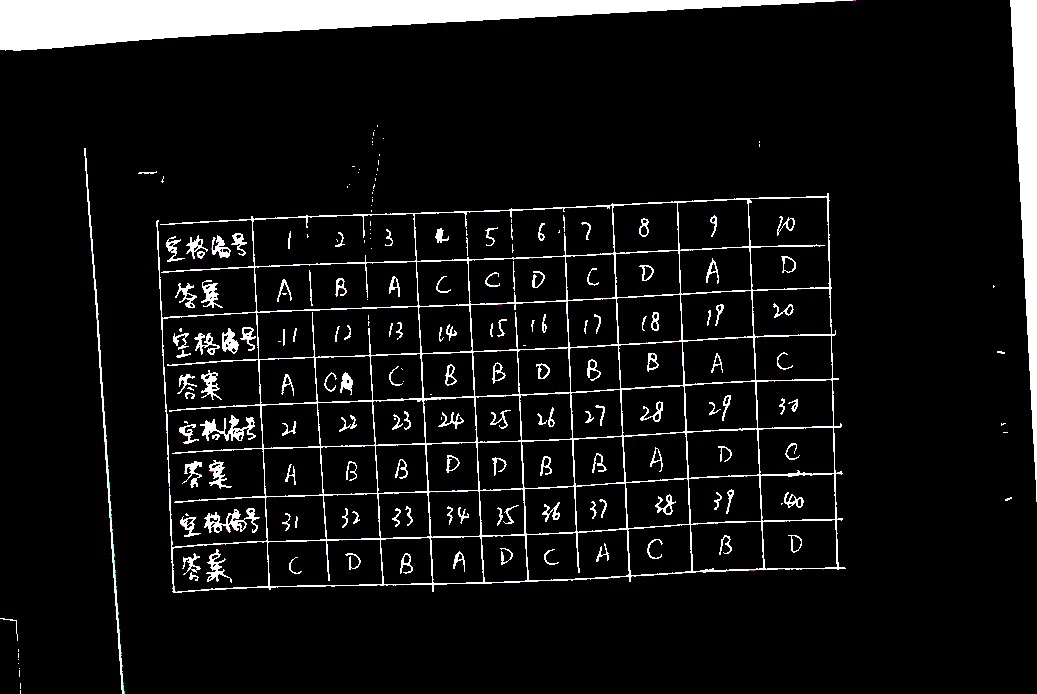 空格编号 1 2 3 4 5 6 7 8 9 10
答案 A B A C C D C D A D
空格编号 11 12 13 14 15 16 17 18 19 20
答案 A C C B B D B B A C
空格编号 21 22 23 24 25 26 27 28 29 30
答案 A B B D D B B A D C
空格编号 31 32 33 34 35 36 37 38 39 40
答案 C D B A D C A C B D